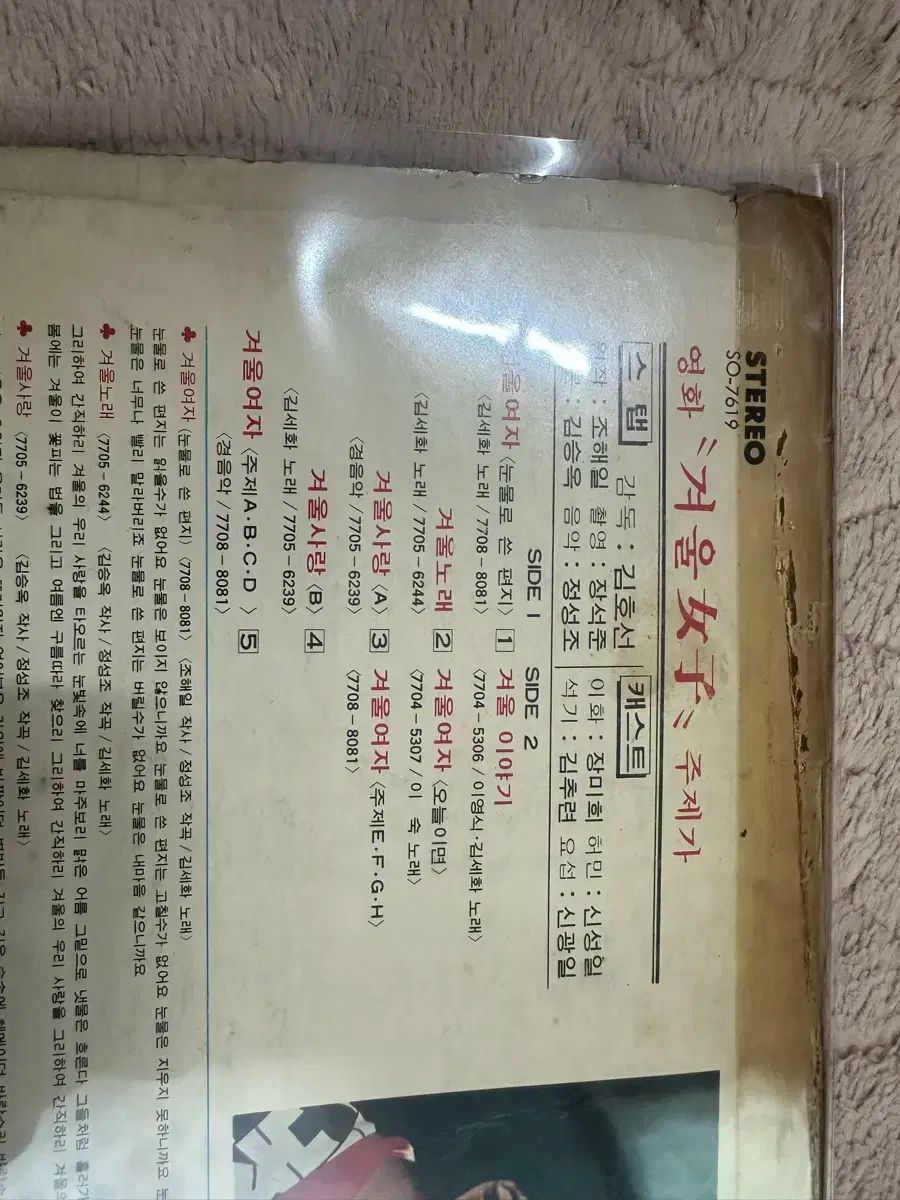 STEREO
SO-7619
영화 〝겨울女子〞 주제가
스탭 감독 : 김호선 캐스트
: 조해일 촬영 : 장석준 이화 : 장미희 허민 : 신성일
: 김승옥 음악 : 정성조 석기 : 김추련 요섭 : 신광일
SIDE 1 SIDE 2
겨울여자 〈눈물로 쓴 편지〉 1 겨울 이야기
〈김세화 노래 / 7708-8081〉 〈7704-5306 / 이영식·김세화 노래〉
겨울노래 2 겨울여자 〈오늘이면〉
〈김세화 노래 / 7705-6244〉 〈7704-5307 / 이 숙 노래〉
겨울사랑 〈A〉 3 겨울여자 〈주제E·F·G·H〉
〈경음악 / 7705-6239〉 〈7708-8081〉
겨울사랑 〈B〉 4
〈김세화 노래 / 7705-6239〉
겨울여자 〈주제A·B·C·D〉 5
〈경음악 / 7708-8081〉
♣ 겨울여자 〈눈물로 쓴 편지〉 〈7708-8081〉 〈조해일 작사 / 정성조 작곡 / 김세화 노래〉
눈물로 쓴 편지는 읽을수가 없어요 눈물은 보이지 않으니까요 눈물로 쓴 편지는 고칠수가 없어요 눈물은 지우지 못하니까요 눈
눈물은 너무나 빨리 말라버리죠 눈물로 쓴 편지는 버릴수가 없어요 눈물은 내마음 같으니까요
♣ 겨울노래 〈7705-6244〉 〈김승옥 작사 / 정성조 작곡 / 김세화 노래〉
그리하여 간직하리 겨울의 우리 사랑을 타오르는 눈빛속에 너를 마주보리 맑은 어름 그밑으로 냇물은 흐른다 그들처럼 흘러가
봄에는 겨울이 꽃피는 법을 그리고 여름엔 구름따라 찾으리 그리하여 간직하리 겨울의 우리 사랑을 그리하여 간직하리 겨울의
♣ 겨울사랑 〈7705-6239〉 〈김승옥 작사 / 정성조 작곡 / 김세화 노래〉